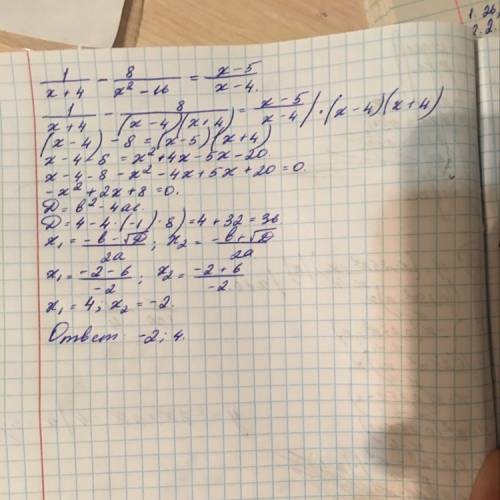 1/(x+4) − 8/(x²−16) = (x−5)/(x−4).
1/(x+4) − 8/((x−4)(x+4)) = (x−5)/(x−4) / · (x−4)(x+4)
(x−4) − 8 = (x−5)(x+4)
x−4−8 = x²+4x−5x−20.
x−4−8−x²−4x+5x+20=0.
−x²+2x+8=0.
D=b²−4ac.
D=4−4·(−1)·8)=4+32=36
x₁=(−b−√D)/2a; x₂=(−b+√D)/2a
x₁=(−2−6)/−2; x₂=(−2+6)/−2.
x₁=4; x₂=−2.
Ответ −2; 4.
1. 26
2. 2.